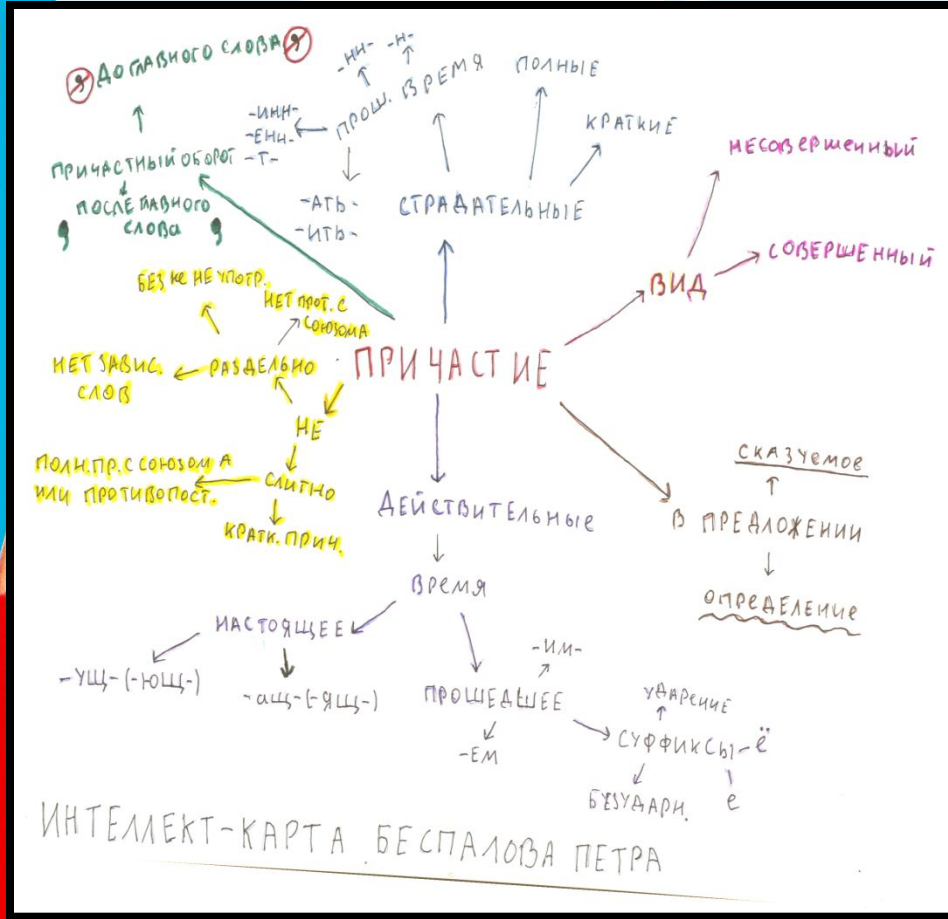 Я ДО ГЛАВНОГО СЛОВА Я
ПРИЧАСТНЫЙ ОБОРОТ
ПОСЛЕ ГЛАВНОГО
, СЛОВА ,
-НН- -Н-
ПРОШ. ВРЕМЯ
-ИНН-
-ЕНН-
-Т-
-АТЬ-
-ИТЬ-
ПОЛНЫЕ
КРАТКИЕ
СТРАДАТЕЛЬНЫЕ
НЕСОВЕРШЕННЫЙ
СОВЕРШЕННЫЙ
ВИД
ПРИЧАСТИЕ
БЕЗ НЕ НЕ УПОТР.
НЕТ ПРОТ. С
СОЮЗОМ А
РАЗДЕЛЬНО
НЕТ ЗАВИС.
СЛОВ
НЕ
СЛИТНО
ПОЛН. ПР. С СОЮЗОМ А
ИЛИ ПРОТИВОПОСТ.
КРАТК. ПРИЧ.
ДЕЙСТВИТЕЛЬНЫЕ
ВРЕМЯ
НАСТОЯЩЕЕ
-УЩ-(-ЮЩ-)
-АЩ-(-ЯЩ-)
ПРОШЕДШЕЕ
-ИМ-
-ЕМ
СУФФИКСЫ-Ё
УДАРЕНИЕ
БЕЗУДАРН.
е
СКАЗУЕМОЕ
В ПРЕДЛОЖЕНИИ
ОПРЕДЕЛЕНИЕ
ИНТЕЛЛЕКТ-КАРТА БЕСПАЛОВА ПЕТРА